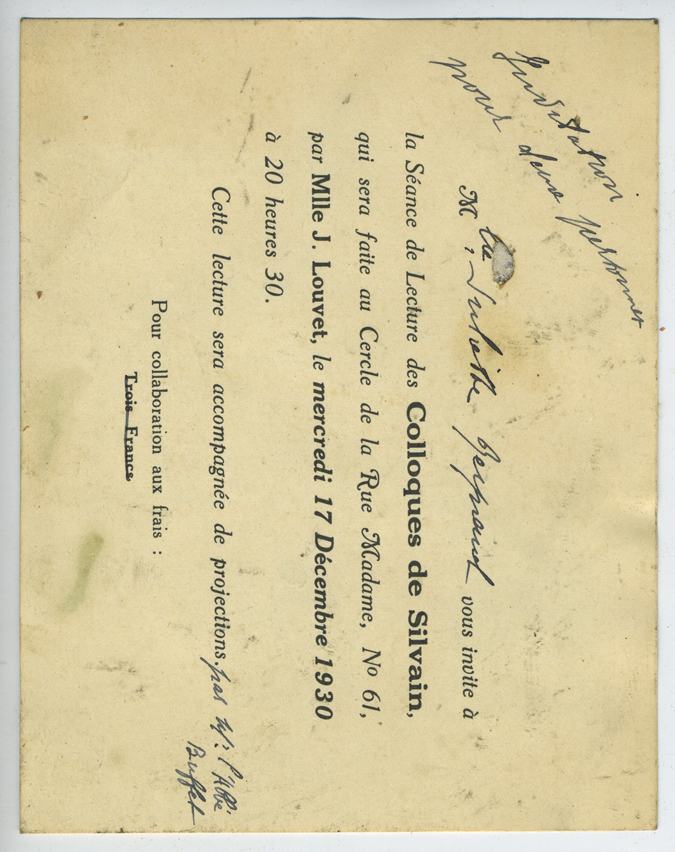 Invitation
pour deux personnes
Mlle Juliette vous invite à
la Séance de Lecture des Colloques de Silvain,
qui sera faite au Cercle de la Rue Madame, No 61,
par Mlle J. Louvet, le mercredi 17 Décembre 1930
à 20 heures 30.
Cette lecture sera accompagnée de projections. par l'Abbé
Buffet
Pour collaboration aux frais :
Trois Francs